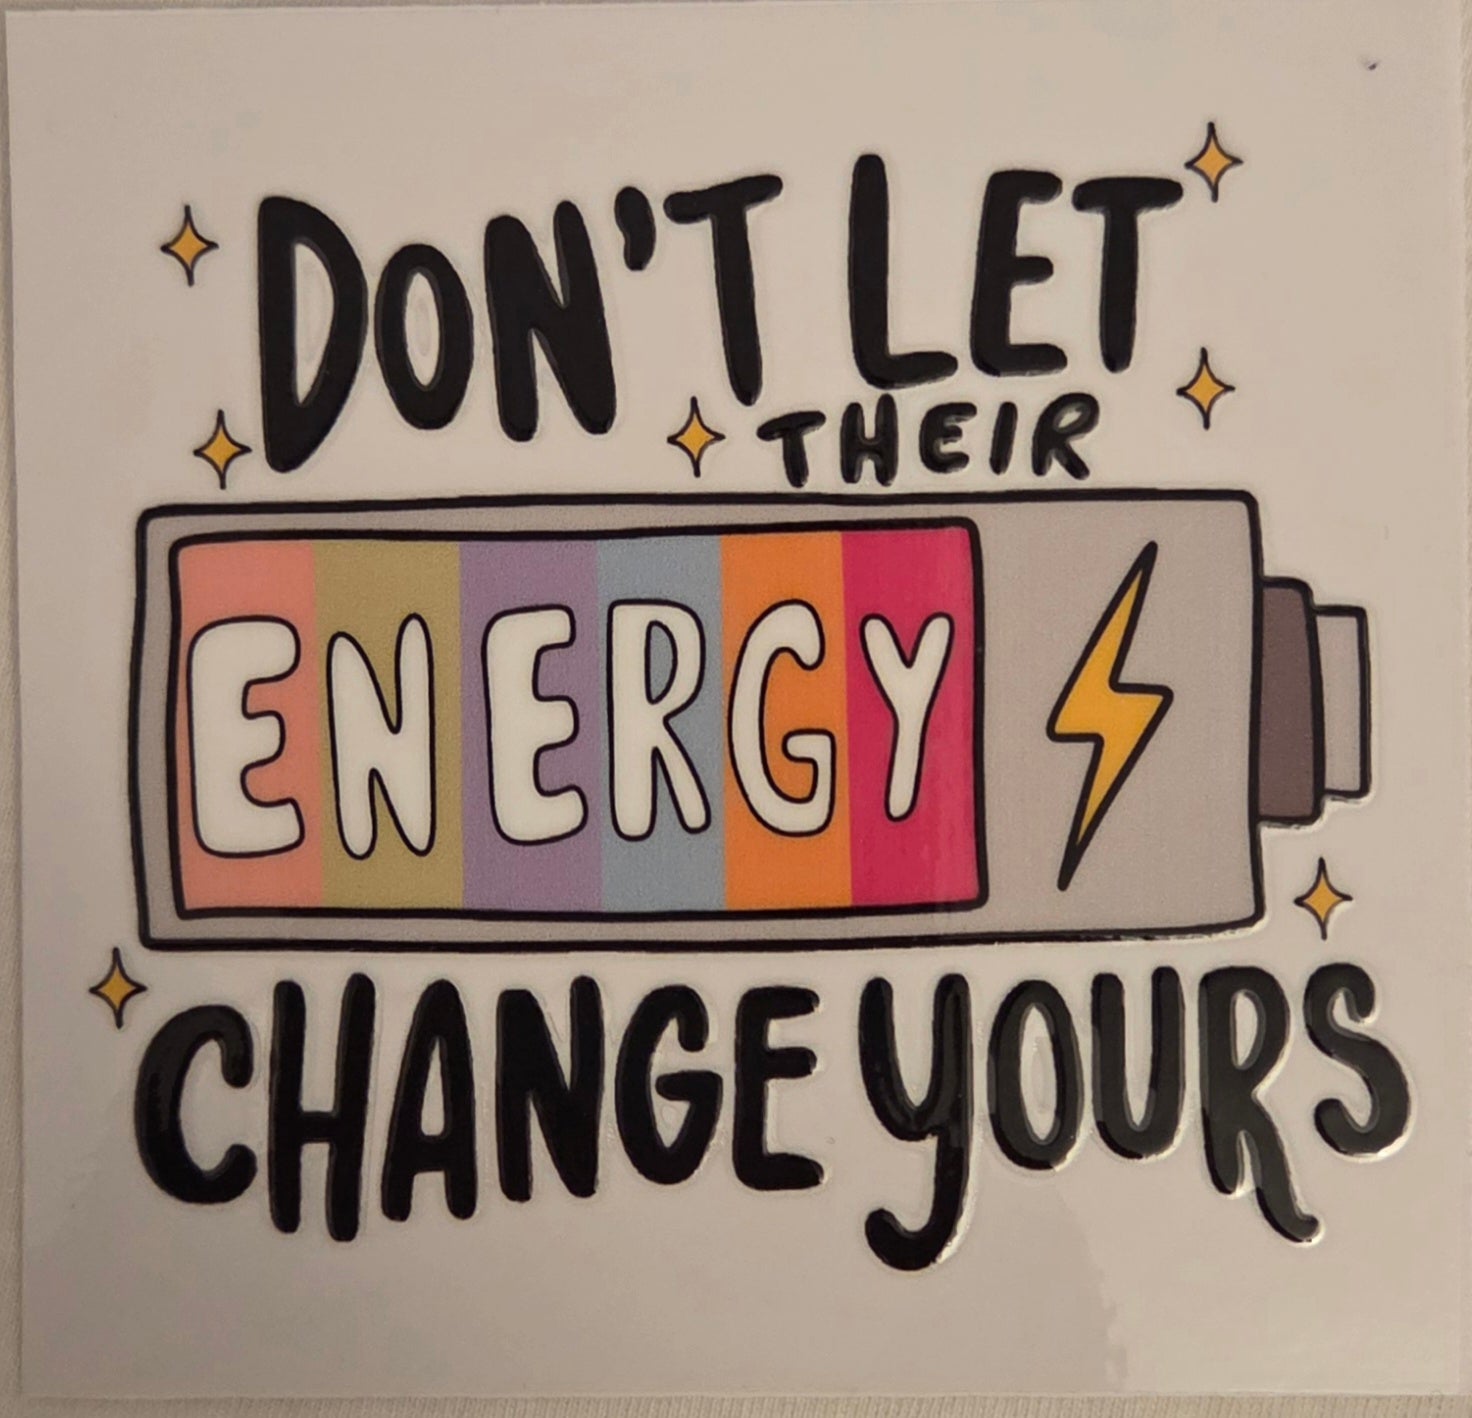 DON'T LET
THEIR
ENERGY
CHANGE YOURS